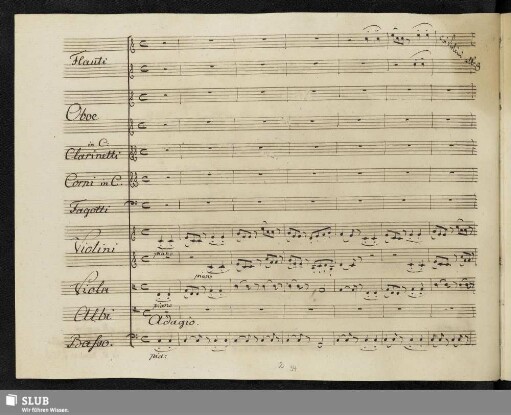 Flauti
Oboe
in C:
Clarinetti
Corni in C.
Fagotti
Violini
piano
piano
Viola
piano
Albi
Adagio.
Basso.
pia:
SLUB
Wir führen Wissen.